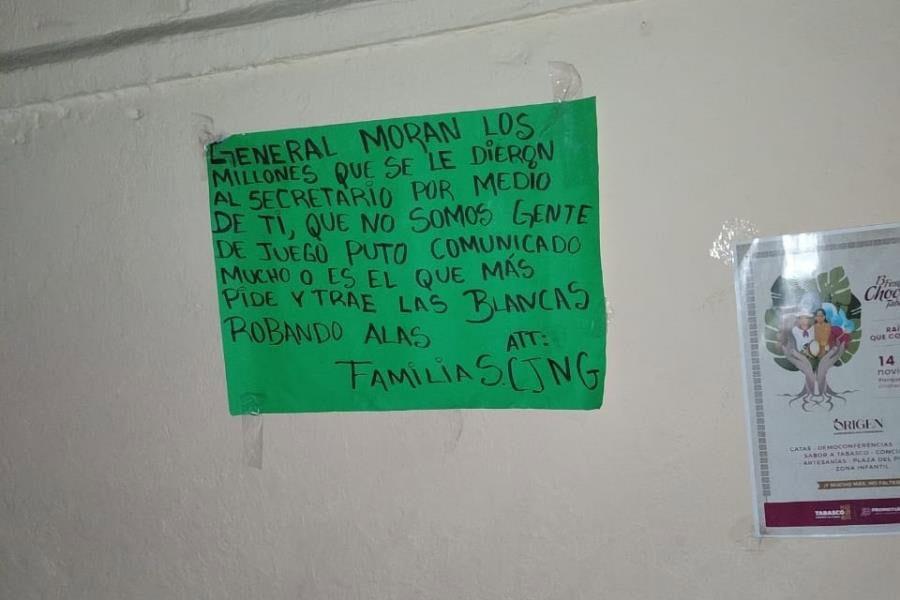 GENERAL MORAN LOS
MILLONES QUE SE LE DIERON
AL SECRETARIO POR MEDIO
DE TI, QUE NO SOMOS GENTE
DE JUEGO PUTO COMUNICADO
MUCHO O ES EL QUE MÁS
PIDE Y TRAE LAS BLANCAS
ROBANDO ALAS
ATT:
FAMILIA S. CJNG
Choco
RAÍ
QUE CO
14
novi
ORIGEN
CATAS - DEMOCONFERENCIAS
SABOR A TABASCO - CONCU
ARTESANÍAS - PLAZA DEL P
ZONA INFANTIL
¡Y MUCHO MÁS, NO FALTE
TABASCO